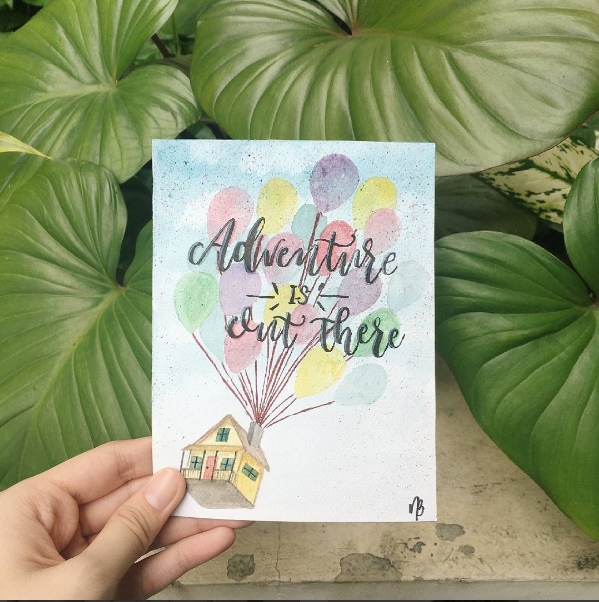 Adventure
is
Out There
NB